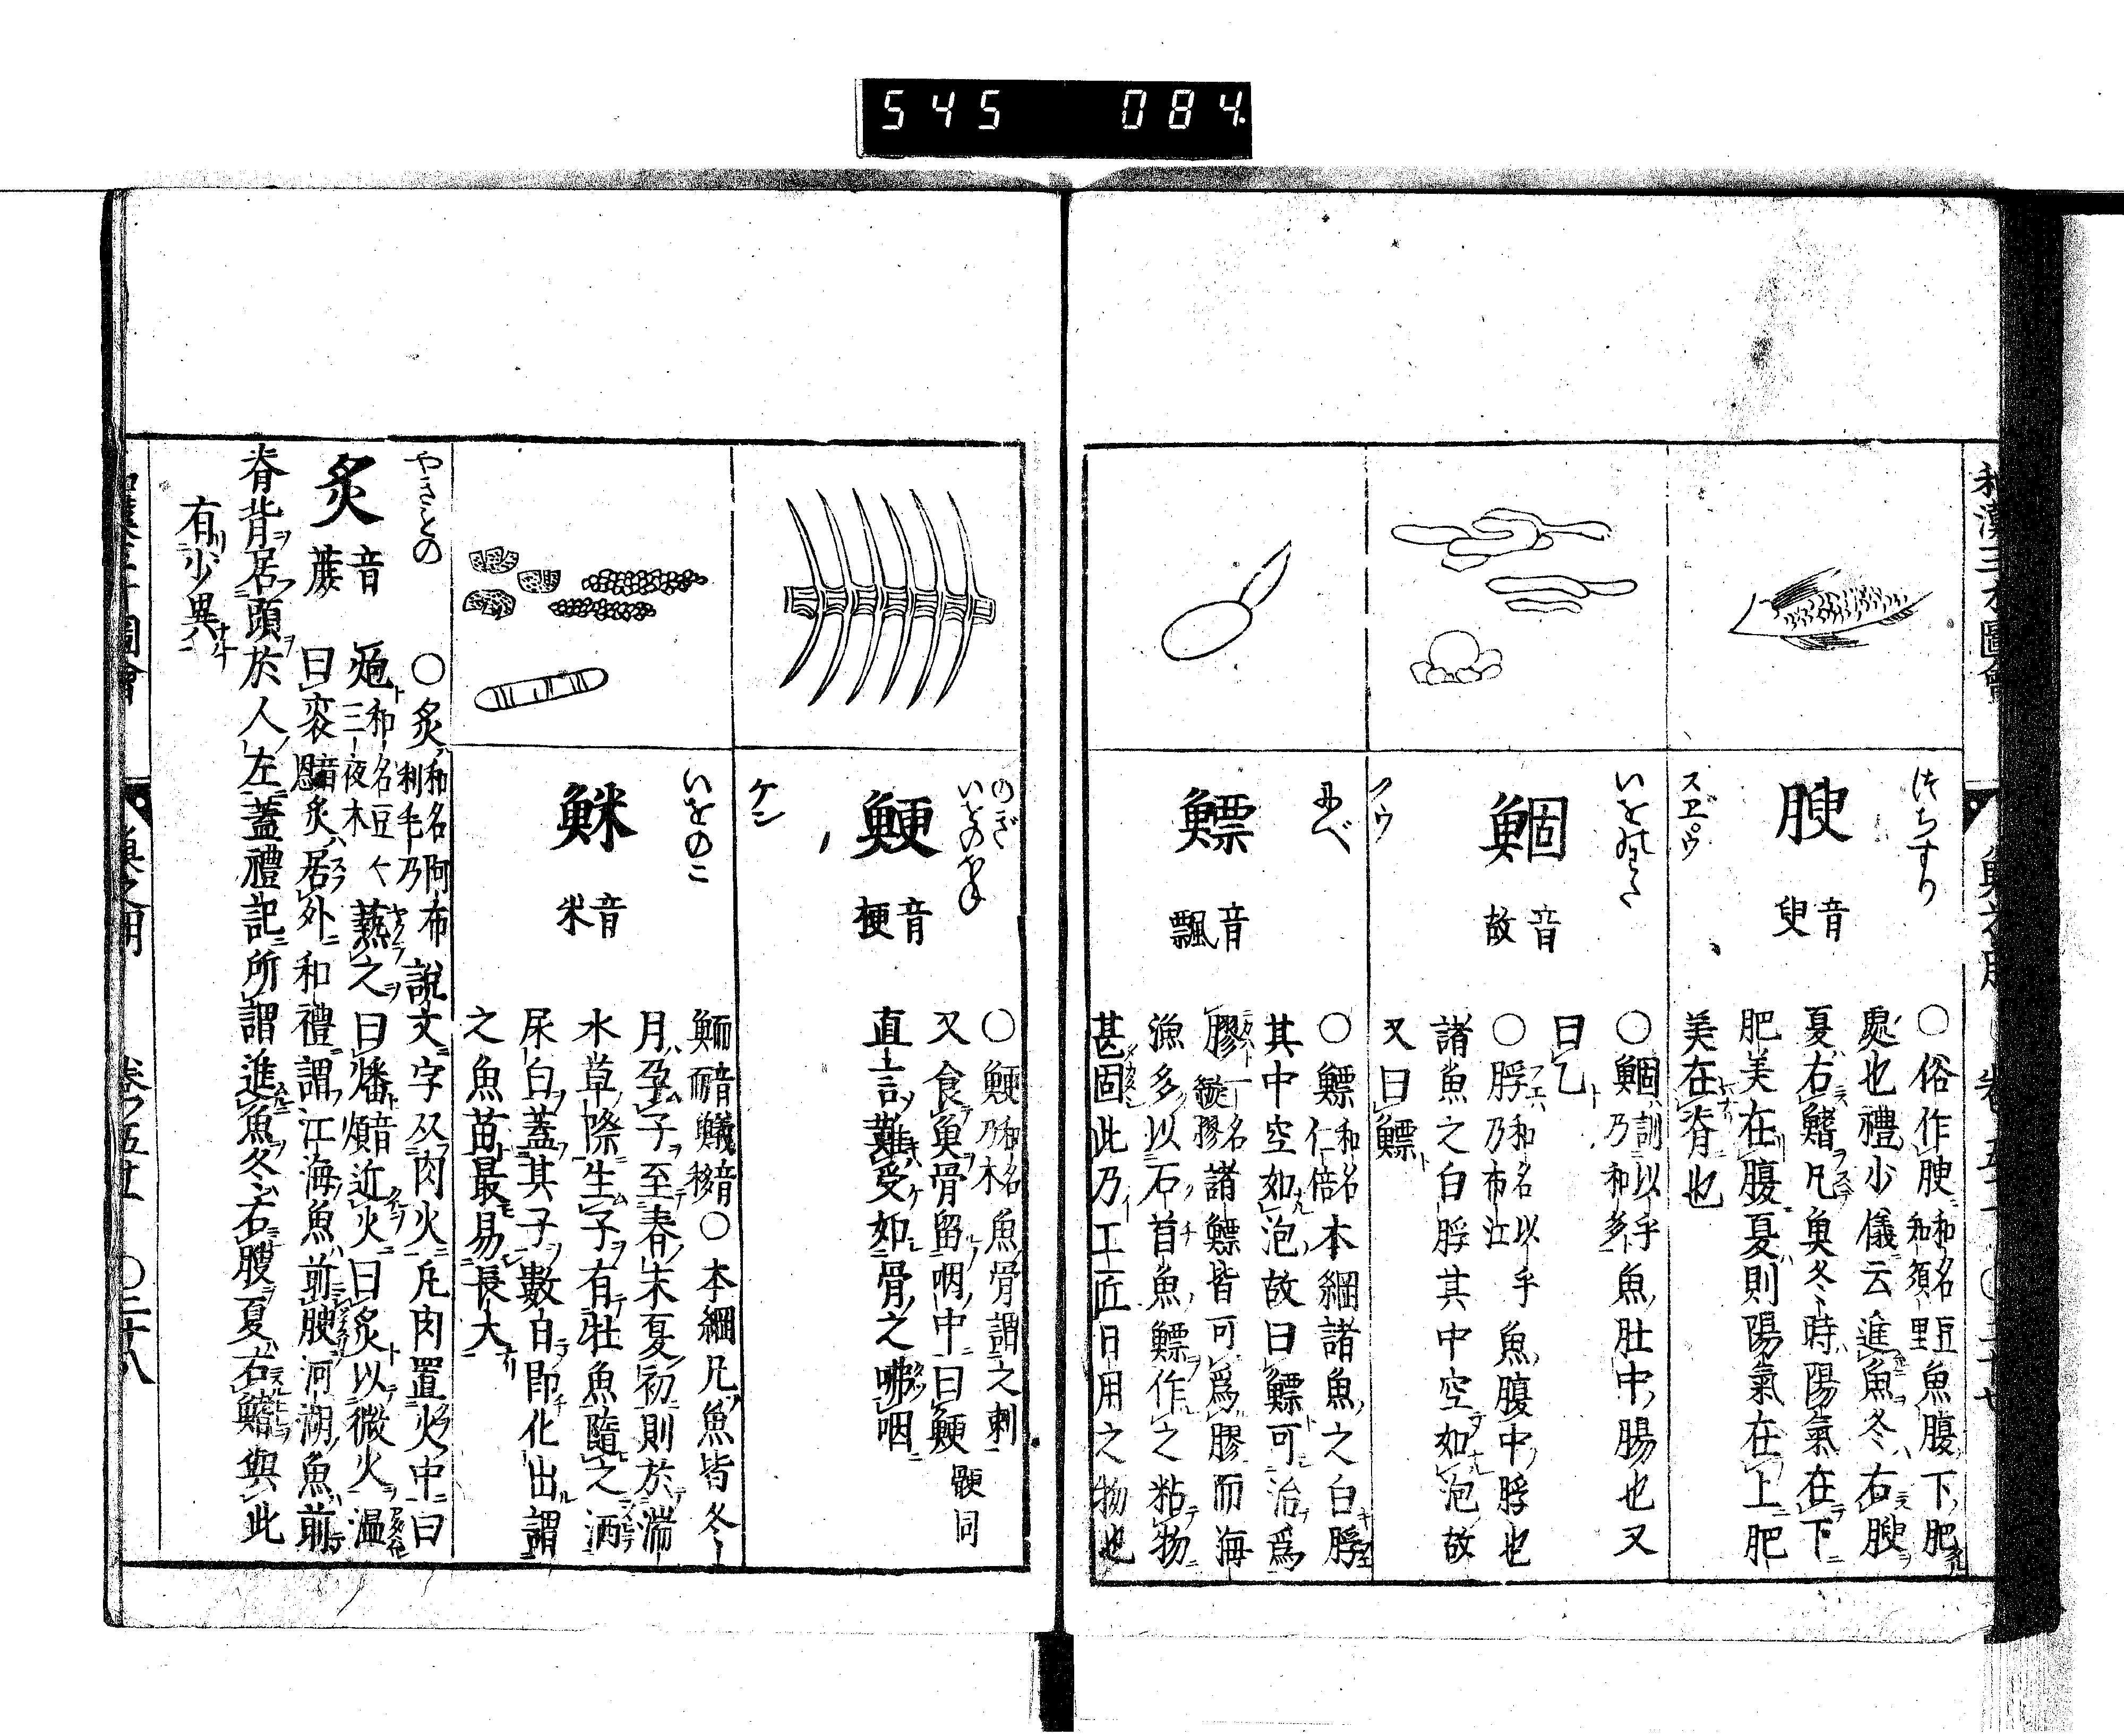 545 084
和漢三才圖會
魚之用
卷五十一
〇二十七
つちすり
腴
音臾
スヱウ
〇俗作腴 和名豆知須里 魚腹下肥
處也禮少儀云進魚冬右腴
夏右鰭凡魚冬時陽氣在下
肥美在腹夏則陽氣在上肥
美在脊也
鯝
音故
クウ
〇鯝 訓以乎乃和多 魚肚中腸也又
曰乙
〇脬 和名以乎乃布江 魚腹中脬也
諸魚之白脬其中空如泡故
又曰鰾
にべ
鰾
音飄
〇鰾 和名仁倍 本綱諸魚之白脬
其中空如泡故曰鰾可治爲
膠 一名鏇膠 諸鰾皆可爲膠而海
漁多以石首魚鰾作之粘物
甚固此乃工匠日用之物也
のぎ
いをのほね
鯁
音梗
ケン
〇鯁 和名乃木 魚骨謂之刺
又食魚骨留咽中曰鯁 骾同
直言難受如骨之咈咽
いをのこ
䱊
音米
鮞 音而 鱥 音移 〇本綱凡魚皆冬
月孕子至春末夏初則於湍
水草際生子有牡魚隨之洒
尿白蓋其子數日即化出謂
之魚苗最易長大
やきもの
炙
音蔗
〇炙 和名阿布利毛乃 說文字从肉火凡肉置火中曰
炮 和名豆々三夜木 蒸之曰燔 音煩 近火曰炙以微火温
曰衮 音恩 炙居外和禮謂江海魚前腴河湖魚前
脊背居頭於人左蓋禮記所謂進魚冬右腴夏右鰭與此
有少異
魚之用
卷五十一
〇二十八